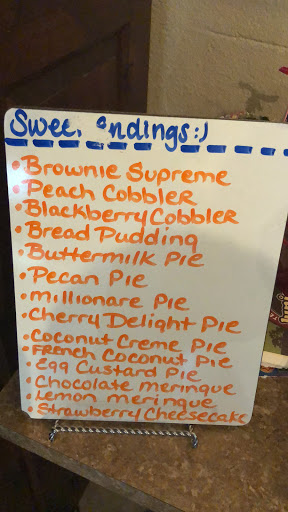 Sweet endings:)
• Brownie Supreme
• Peach Cobbler
• Blackberry Cobbler
• Bread Pudding
• Buttermilk Pie
• Pecan Pie
• millionare Pie
• Cherry Delight Pie
• Coconut Creme Pie
• French Coconut Pie
• Egg Custard Pie
• Chocolate meringue
• Lemon meringue
• Strawberry Cheesecake